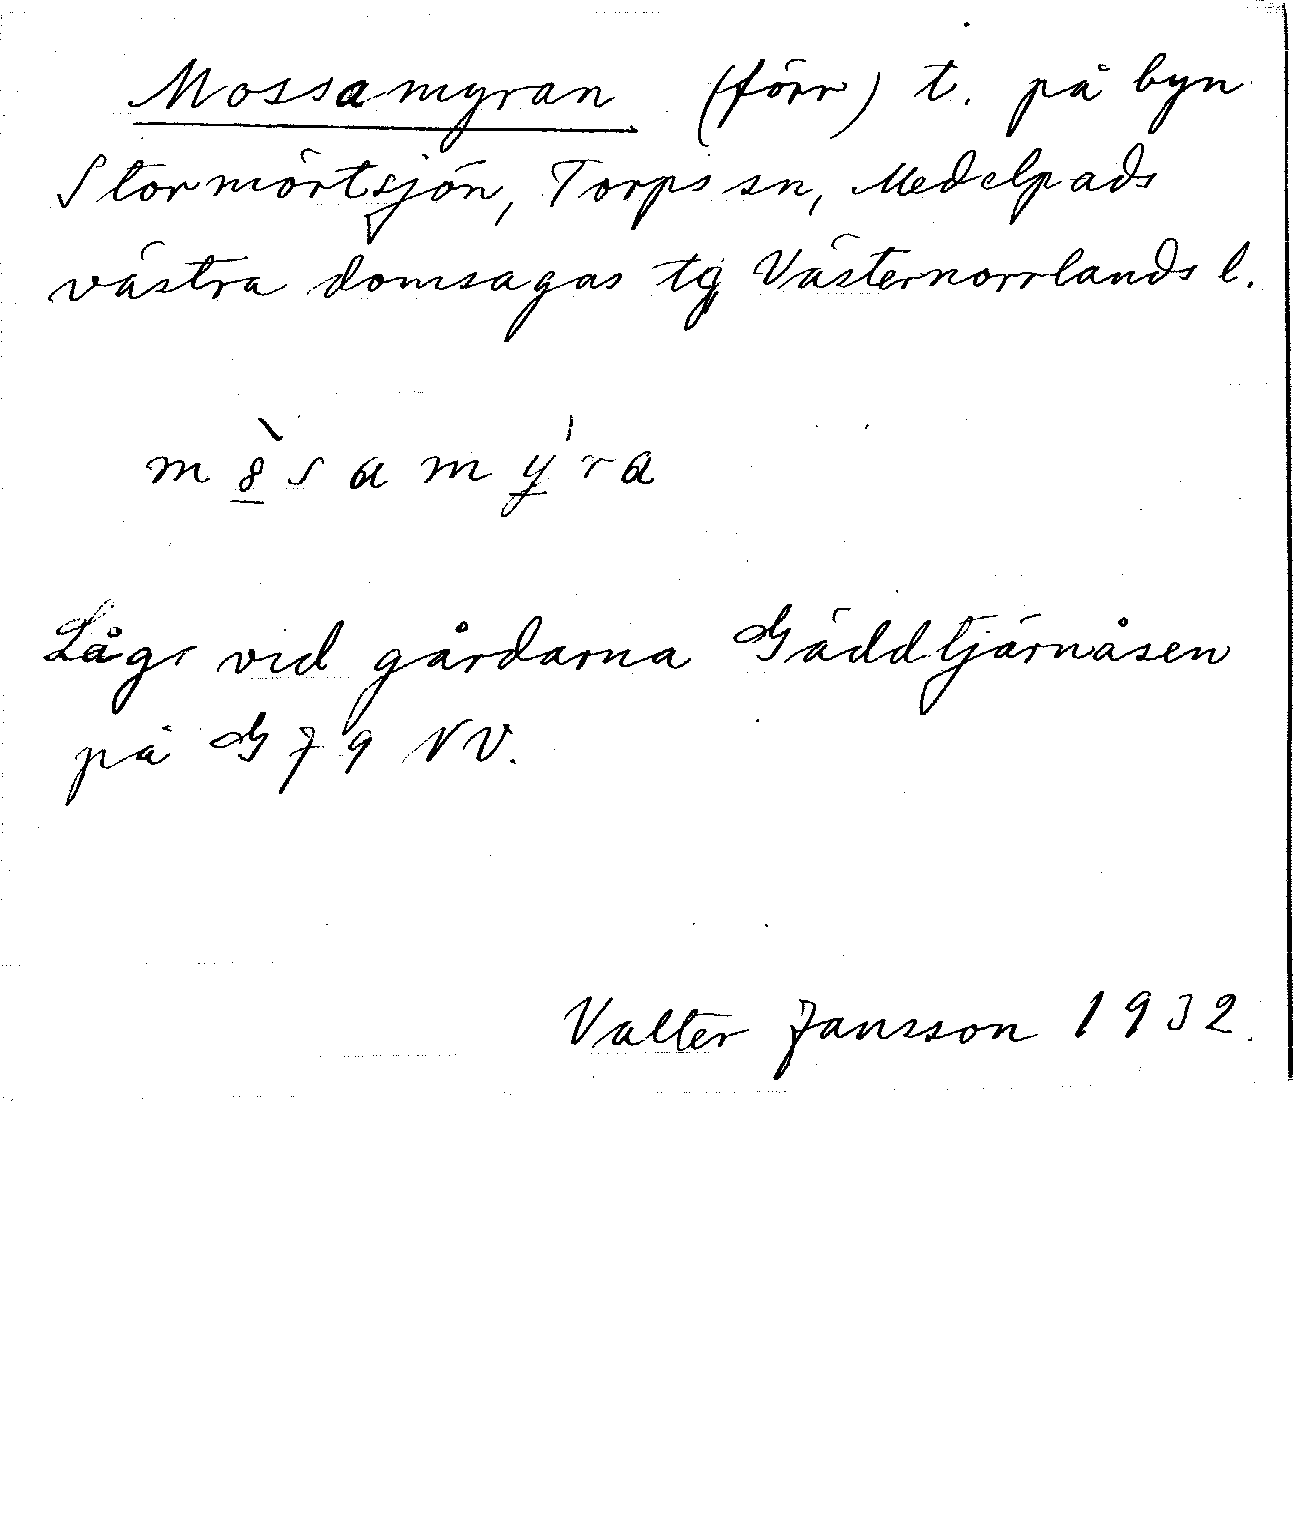 Mossamyran (förr) t. på byn
Stormörtsjön, Torps sn, Medelpads
västra domsagas tg Västernorrlands l.
m8̲̀samy̲̍ra
Låg vid gårdarna Gäddtjärnåsen
på G 79 NV.
Valter Jansson 1932.